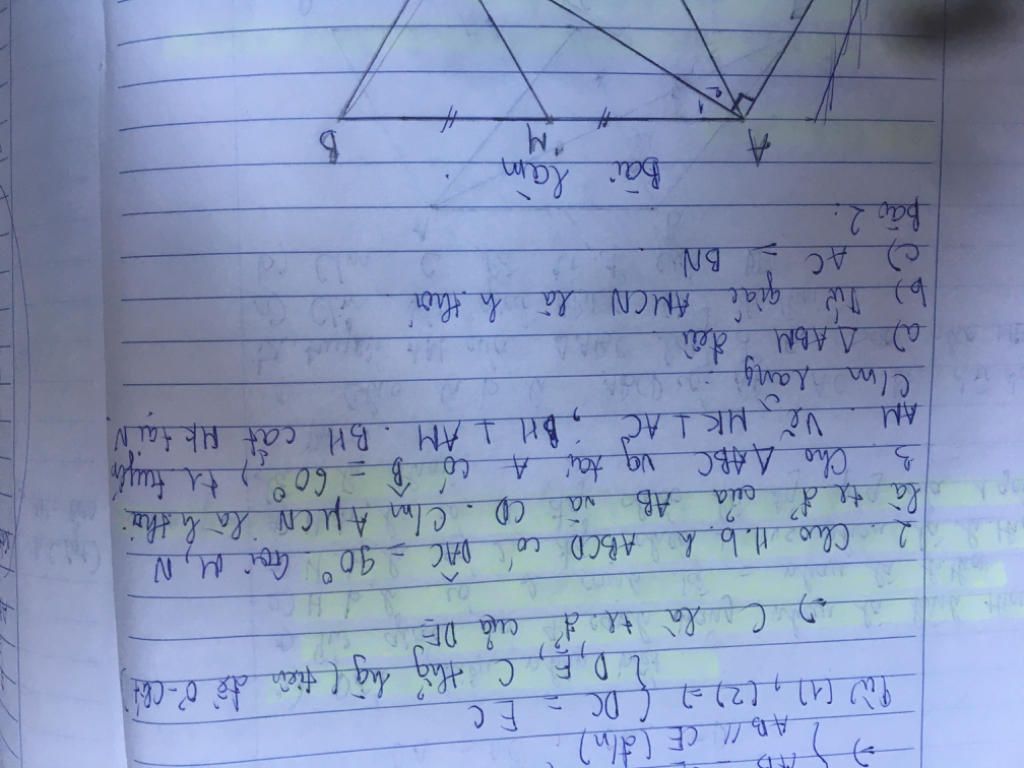 => { AB
AB // CE (dln)
Từ (1), (2) => { DC = EC
D, E, C thẳg hàg (tiên đề Ơ-clit)
=> C là tr đ' của DE
2 Cho H.b.h ABCD có DAC = 90°. Gọi M, N
là tr đ' của AB và CD. C/m AMCN là h thoi
3 Cho ΔABC vg tại A có B = 60°, tr tuyến
AM. Vẽ MK ⊥ AC, BH ⊥ AM. BH cắt MK tại N
C/m rằng:
a) ΔABM đều
b) Tứ giác AMCN là h thoi
c) AC = BN
Bài 2:
Bài làm
A M B
1 2